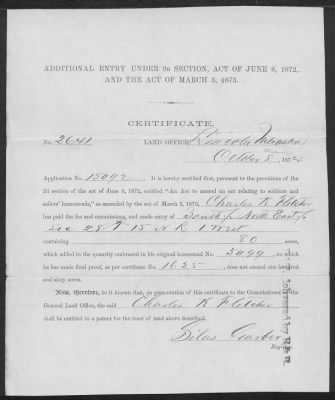 ADDITIONAL ENTRY UNDER 2D SECTION, ACT OF JUNE 8, 1872,
AND THE ACT OF MARCH 3, 1873.
CERTIFICATE.
No. 2641 LAND OFFICE, Lincoln Nebraska
October 8, 187
Application No. It is hereby certified that, pursuant to the provisions of the
2d section of the act of June 8, 1872, entitled "An Act to amend an act relating to soldiers and
sailors' homesteads," as amended by the act of March 3, 1873, Charles K Fletcher
has paid the fee and commissions, and made entry of South ½ North East ¼
Sec 28 T 15 N R 1 West
containing 80 acres,
which added to the quantity embraced in his original homestead No. 5499 on which
he has made final proof, as per certificate No. 1635 does not exceed one hundred
and sixty acres.
Now, therefore, be it known, that on presentation of this certificate to the Commissioner of the
General Land Office, the said Charles K Fletcher
shall be entitled to a patent for the tract of land above described.
Silas Garber